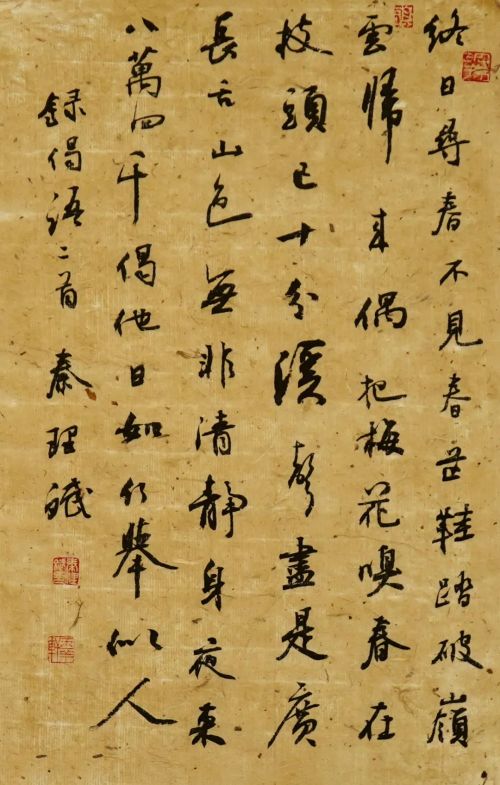 終日尋春不見春芒鞋踏破嶺
雲歸来偶把梅花嗅春在
枝頭已十分溪聲盡是廣
長舌山色無非清静身夜来
八萬四千偈他日如何舉似人
録偈語二首秦理斌